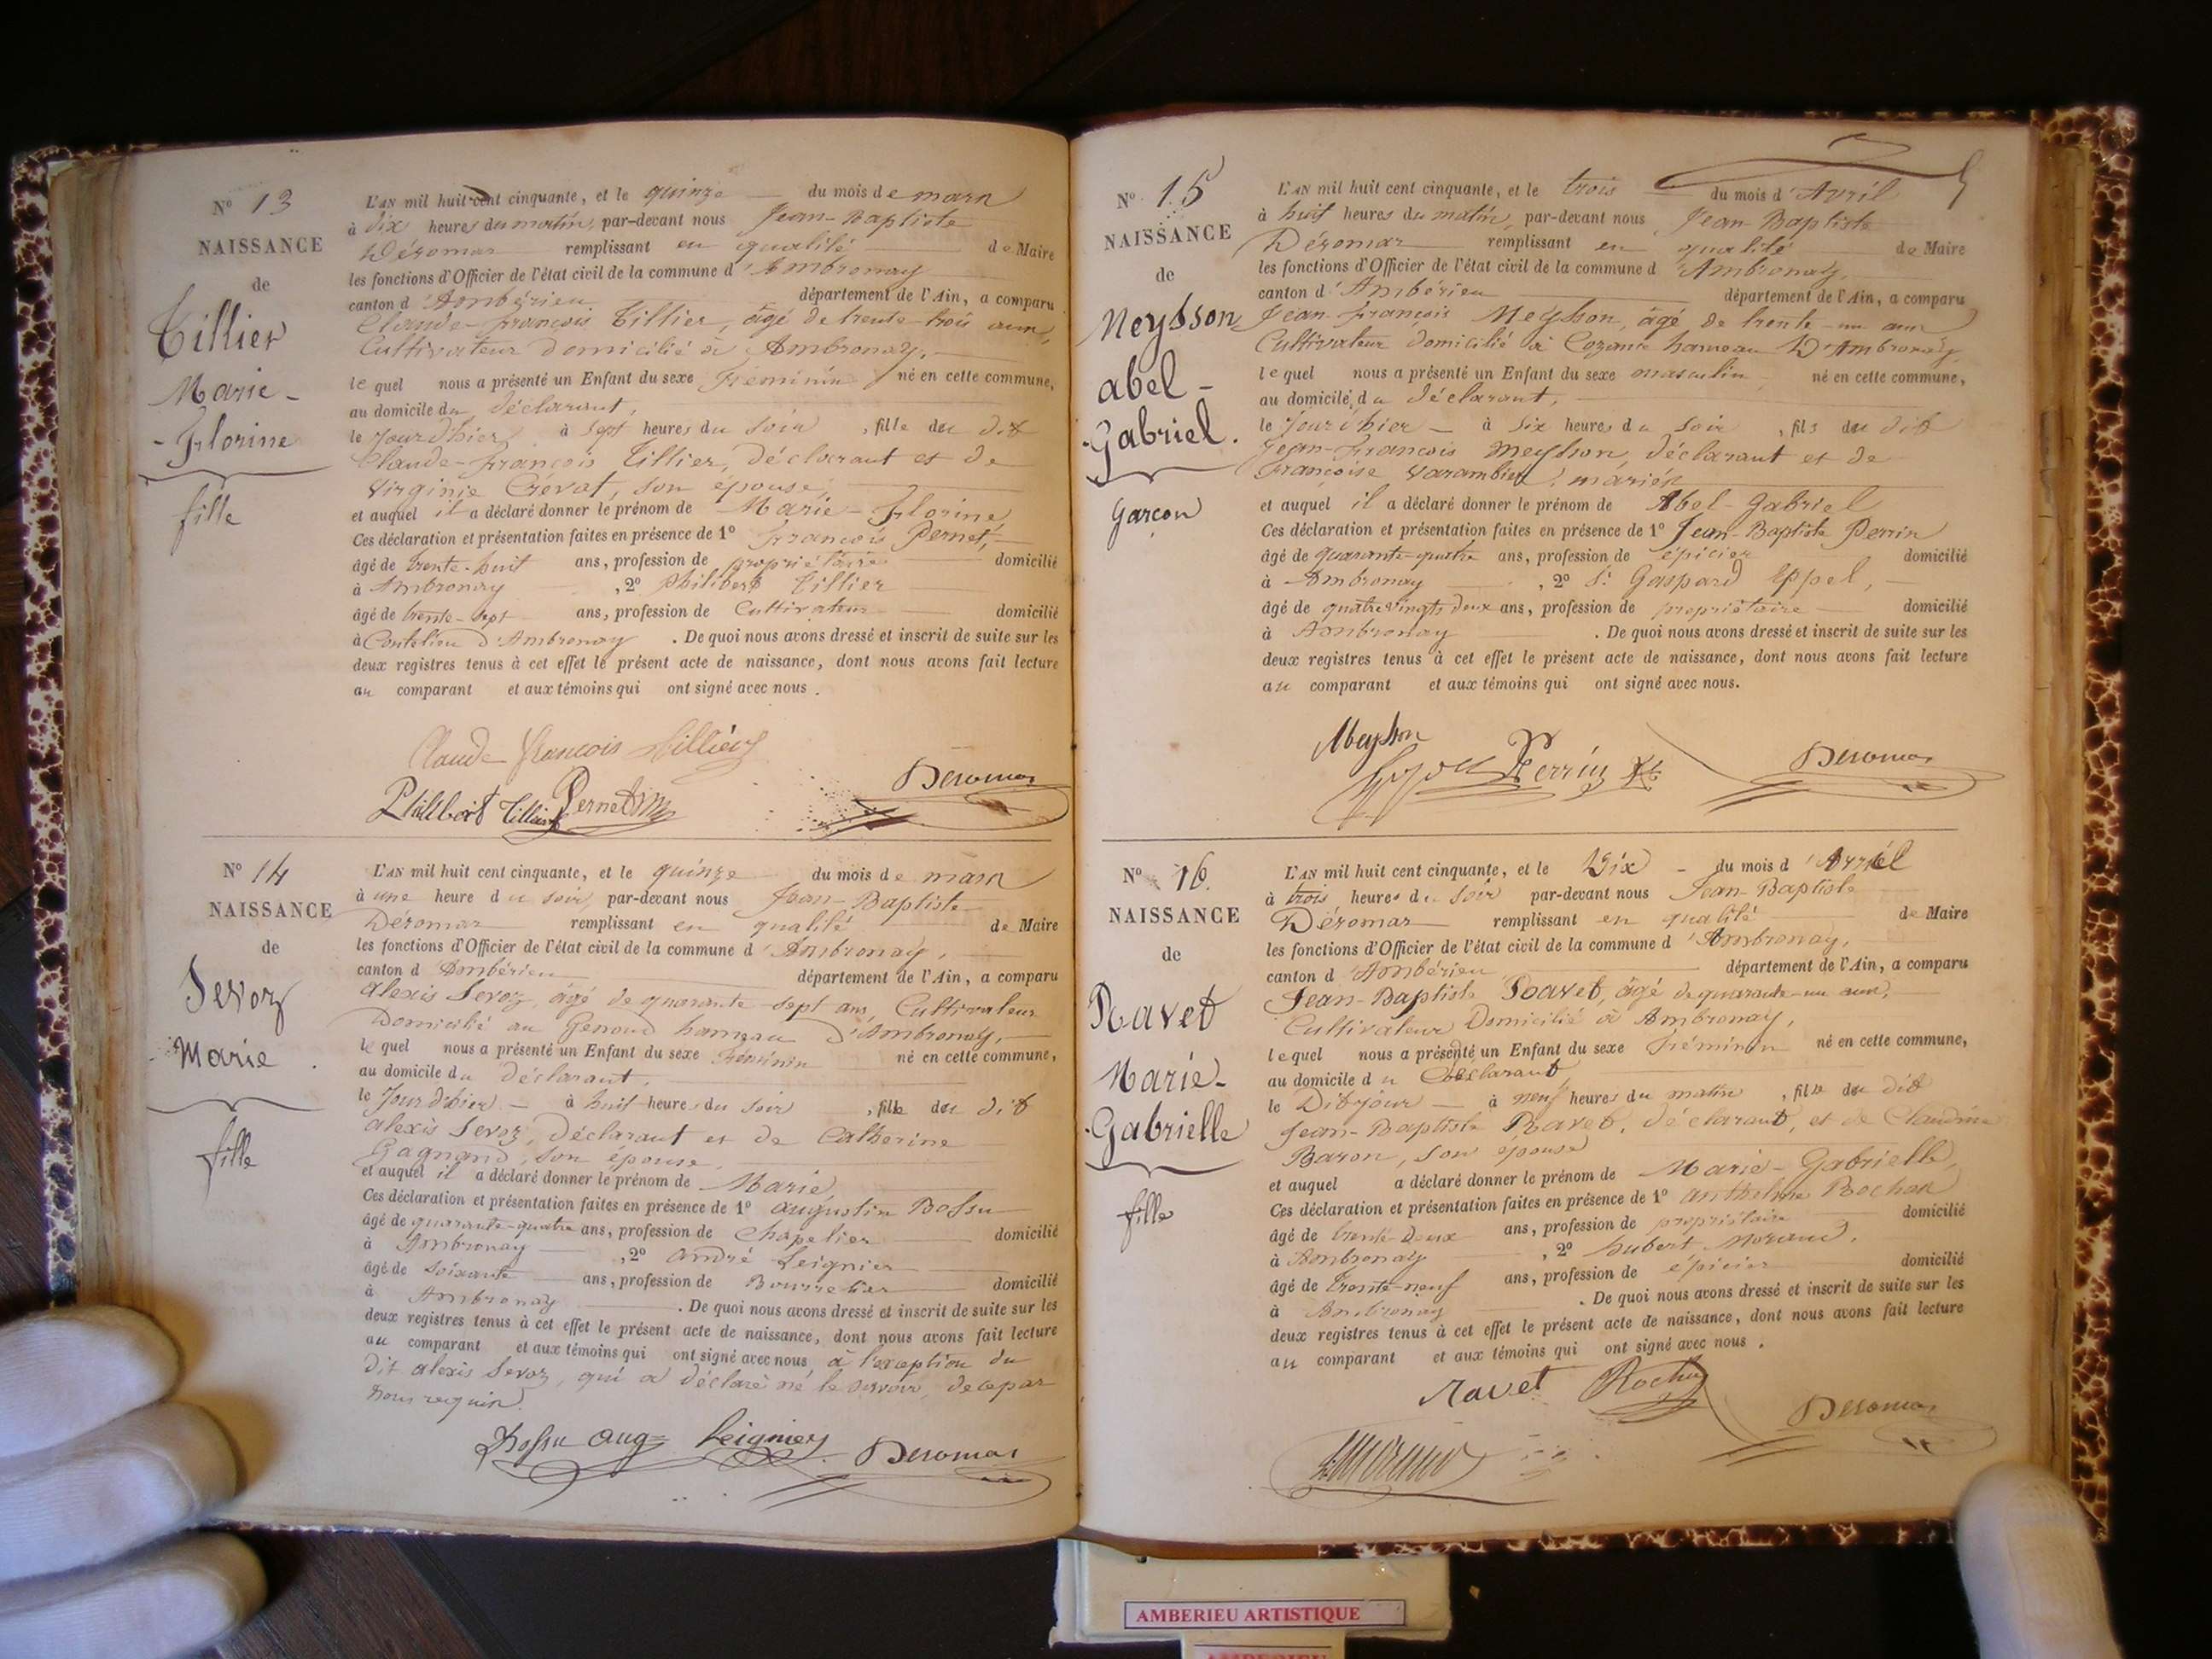 N° 13
NAISSANCE
de
Tillier
Marie-
-Florine
fille
L'AN mil huit cent cinquante, et le quinze du mois de mars
à dix heures du matin, par-devant nous Jean-Baptiste
Déromas remplissant en qualité de Maire
les fonctions d'Officier de l'état civil de la commune d'Ambronay
canton d'Ambérieu département de l'Ain, a comparu
Claude-françois Tillier, âgé de trente-trois ans,
Cultivateur domicilié à Ambronay,
lequel nous a présenté un Enfant du sexe Féminin né en cette commune,
au domicile du déclarant,
le jour d'hier à sept heures du soir, fille du dit
Claude-françois Tillier, déclarant et de
Virginie Crévat, son épouse,
et auquel il a déclaré donner le prénom de Marie-Florine
Ces déclaration et présentation faites en présence de 1° françois Pernet,
âgé de trente-huit ans, profession de propriétaire domicilié
à Ambronay, 2° Philibert Tillier
âgé de trente-sept ans, profession de Cultivateur domicilié
à Coutelieu d'Ambronay. De quoi nous avons dressé et inscrit de suite sur les
deux registres tenus à cet effet le présent acte de naissance, dont nous avons fait lecture
au comparant et aux témoins qui ont signé avec nous.
Claude françois tillier
Philibert tillier Pernet Deromas
N° 14
NAISSANCE
de
Sevoz
Marie
fille
L'AN mil huit cent cinquante, et le quinze du mois de mars
à une heure du soir par-devant nous Jean-Baptiste
Déromas remplissant en qualité de Maire
les fonctions d'Officier de l'état civil de la commune d'Ambronay,
canton d'Ambérieu département de l'Ain, a comparu
alexis Sevoz, âgé de quarante-sept ans, Cultivateur
Domicilié au Genoud hameau d'Ambronay,
lequel nous a présenté un Enfant du sexe Féminin né en cette commune,
au domicile du Déclarant,
le Jour d'hier à huit heures du soir, fille du dit
alexis Sevoz, déclarant et de Catherine
Gagnand, son épouse,
et auquel il a déclaré donner le prénom de Marie
Ces déclaration et présentation faites en présence de 1° augustin Bossu
âgé de quarante-quatre ans, profession de Chapelier domicilié
à Ambronay, 2° andré Leignier
âgé de soixante ans, profession de Bourrelier domicilié
à Ambronay. De quoi nous avons dressé et inscrit de suite sur les
deux registres tenus à cet effet le présent acte de naissance, dont nous avons fait lecture
au comparant et aux témoins qui ont signé avec nous à l'exception du
dit alexis Sevoz, qui a déclaré ne le savoir, de ce par
nous requis.
Bossu aug Leignier Deromas
N° 15
NAISSANCE
de
Meysson
abel-
-Gabriel.
Garçon
L'AN mil huit cent cinquante, et le trois du mois d'Avril
à huit heures du matin, par-devant nous Jean-Baptiste
Déromas remplissant en qualité de Maire
les fonctions d'Officier de l'état civil de la commune d'Ambronay,
canton d'Ambérieu département de l'Ain, a comparu
Jean-françois Meysson, âgé de trente-un ans
Cultivateur domicilié à Cozance hameau D'Ambronay,
lequel nous a présenté un Enfant du sexe masculin né en cette commune,
au domicile du déclarant,
le Jour d'hier à six heures du soir, fils du dit
Jean-François Meysson, déclarant et de
françoise Varambier, mariés
et auquel il a déclaré donner le prénom de Abel-Gabriel
Ces déclaration et présentation faites en présence de 1° Jean-Baptiste Perrin
âgé de quarante-quatre ans, profession de épicier domicilié
à Ambronay, 2° Sr Gaspard Eppel,
âgé de quatre vingts deux ans, profession de propriétaire domicilié
à Ambronay. De quoi nous avons dressé et inscrit de suite sur les
deux registres tenus à cet effet le présent acte de naissance, dont nous avons fait lecture
au comparant et aux témoins qui ont signé avec nous.
Meysson
Perrin Deromas
N° 16.
NAISSANCE
de
Ravet
Marie-
-Gabrielle
fille
L'AN mil huit cent cinquante, et le Dix du mois d'Avril
à trois heures du soir par-devant nous Jean-Baptiste
Déromas remplissant en qualité de Maire
les fonctions d'Officier de l'état civil de la commune d'Ambronay,
canton d'Ambérieu département de l'Ain, a comparu
Jean-Baptiste Ravet, âgé de quarante-un ans,
Cultivateur Domicilié à Ambronay,
lequel nous a présenté un Enfant du sexe Féminin né en cette commune,
au domicile du Déclarant
le Dit jour à neuf heures du matin, fille du dit
Jean-Baptiste Ravet, déclarant, et de Claudine
Baron, son épouse
et auquel a déclaré donner le prénom de Marie-Gabrielle,
Ces déclaration et présentation faites en présence de 1° anthelme Rochas
âgé de trente-deux ans, profession de propriétaire domicilié
à Ambronay, 2° hubert Morand,
âgé de trente-neuf ans, profession de épicier domicilié
à Ambronay. De quoi nous avons dressé et inscrit de suite sur les
deux registres tenus à cet effet le présent acte de naissance, dont nous avons fait lecture
au comparant et aux témoins qui ont signé avec nous.
ravet Rochas Deromas
AMBERIEU ARTISTIQUE
AMBERIEU